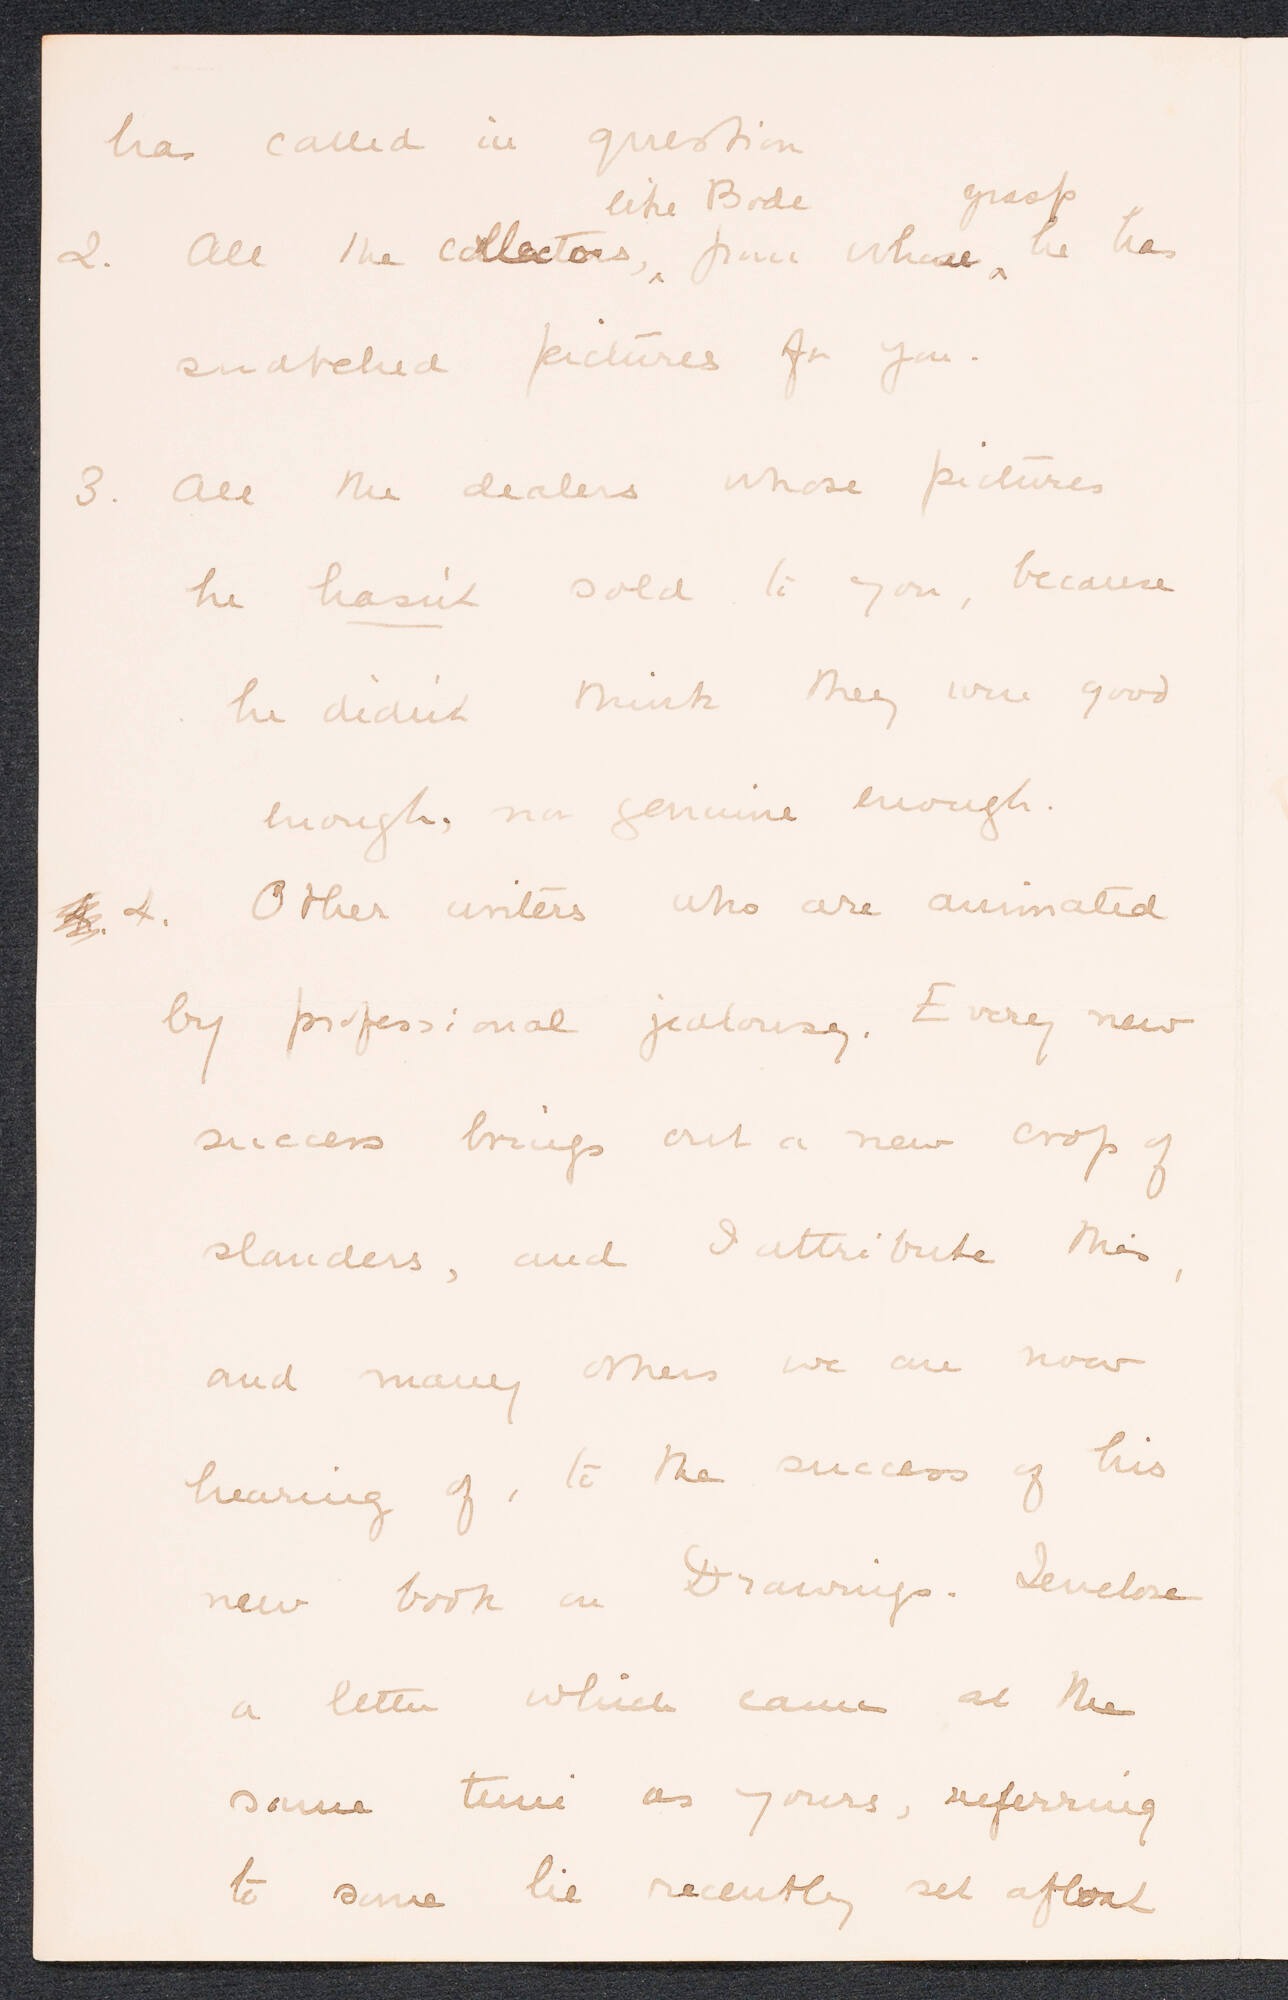 has called in question
like Bode grasp
2. All the collectors, ^ from whose ^ he has
snatched pictures for you.
3. All the dealers whose pictures
he hasn't sold to you, because
he didn't think they were good
enough, nor genuine enough.
4. Other writers who are animated
by professional jealousy. Every new
success brings out a new crop of
slanders, and I attribute this,
and many others we are now
hearing of, to the success of his
new book on Drawings. I enclose
a letter which came at the
same time as yours, referring
to some lie recently set afloat